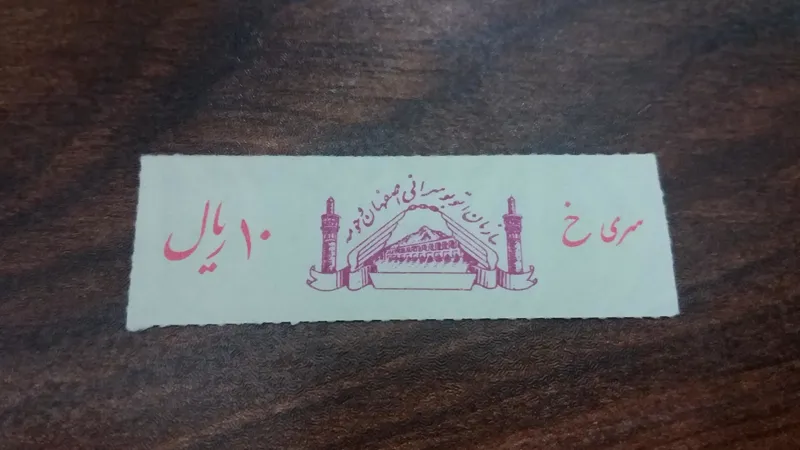 سری خ
سازمان اتوبوسرانی اصفهان و حومه
۱۰ ریال